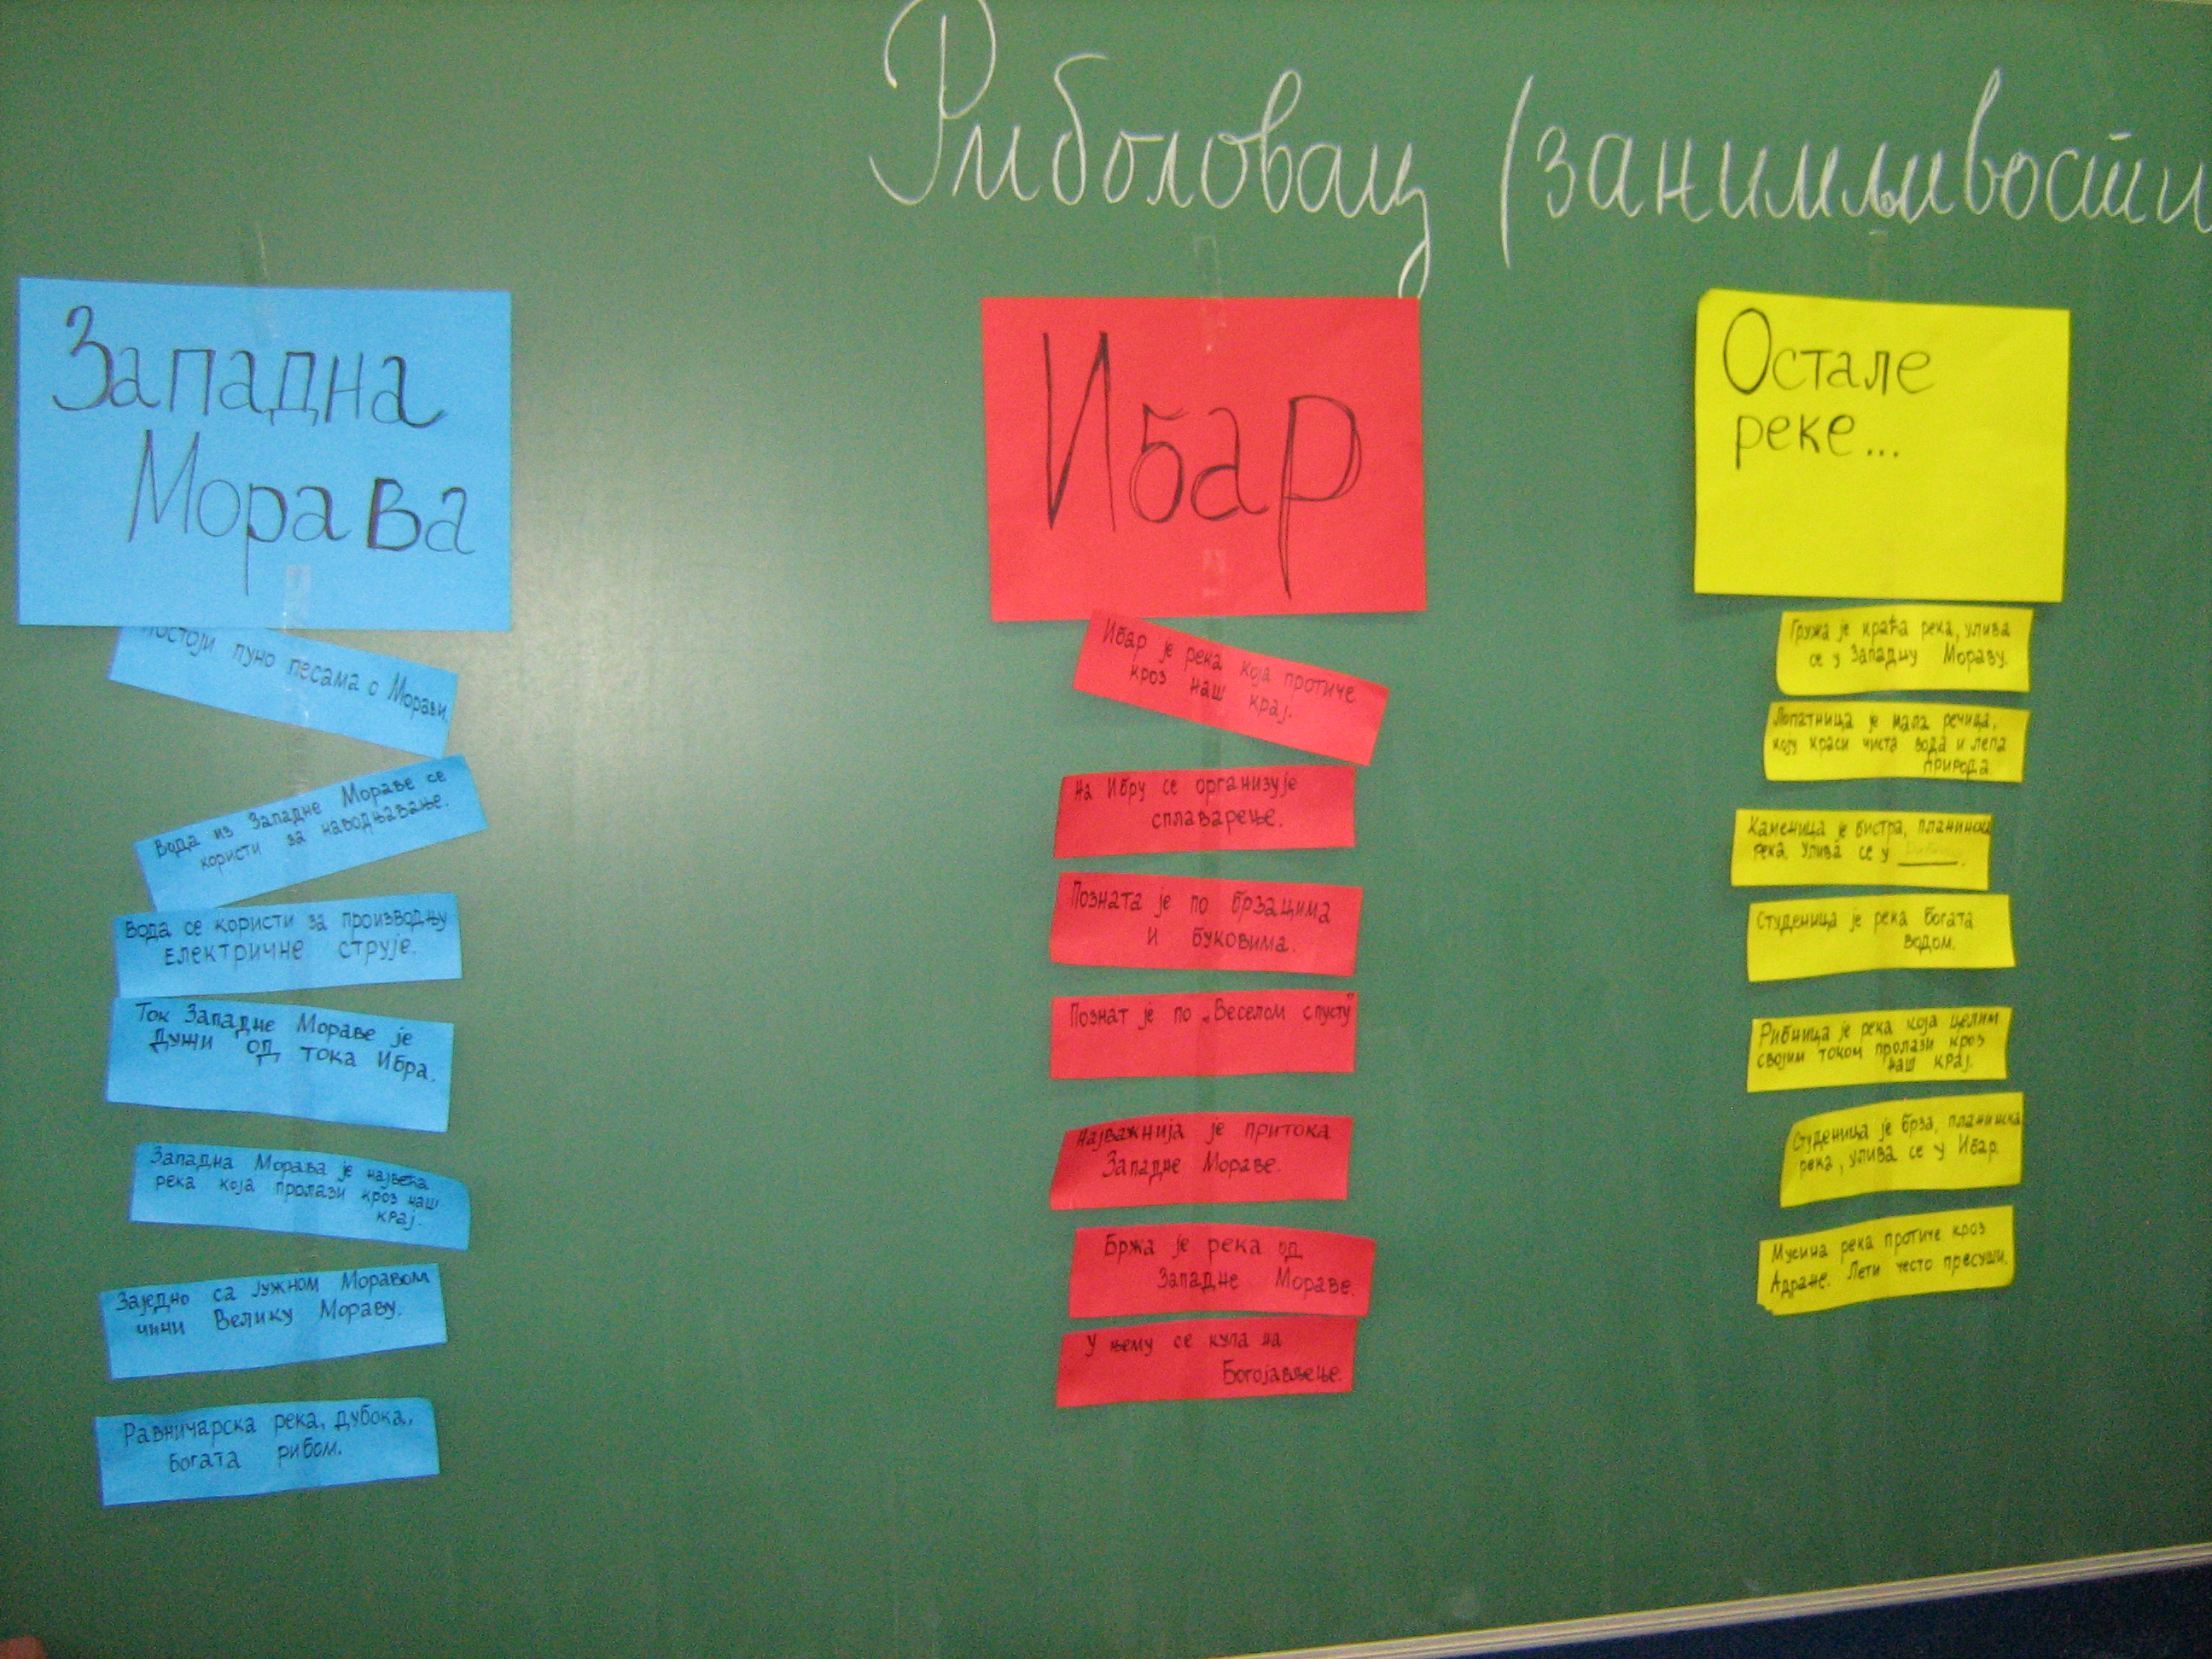 Риболовац (занимљивости
Западна
Морава
Постоји пуно песама о Морави.
Вода из Западне Мораве се
користи за наводњавање.
Вода се користи за производњу
Електричне струје.
Ток Западне Мораве је
Дужи од тока Ибра.
Западна Морава је највећа
река која пролази кроз наш
крај.
Заједно са Јужном Моравом
чини Велику Мораву.
Равничарска река, дубока,
богата рибом.
Ибар
Ибар је река која протиче
кроз наш крај.
На Ибру се организује
сплаварење.
Позната је по брзацима
и буковима.
Познат је по „Веселом спусту"
Најважнија је притока
Западне Мораве.
Бржа је река од
Западне Мораве.
У њему се купа на
Богојављење.
Остале
реке...
Гружа је краћа река, улива
се у Западну Мораву.
Лопатница је мала речица,
коју краси чиста вода и лепа
природа.
Каменица је бистра, планинска
река. Улива се у ______.
Студеница је река богата
водом.
Рибница је река која целим
својим током пролази кроз
наш крај.
Студеница је брза, планинска
река, улива се у Ибар.
Мусина река протиче кроз
Адране. Лети често пресуши.